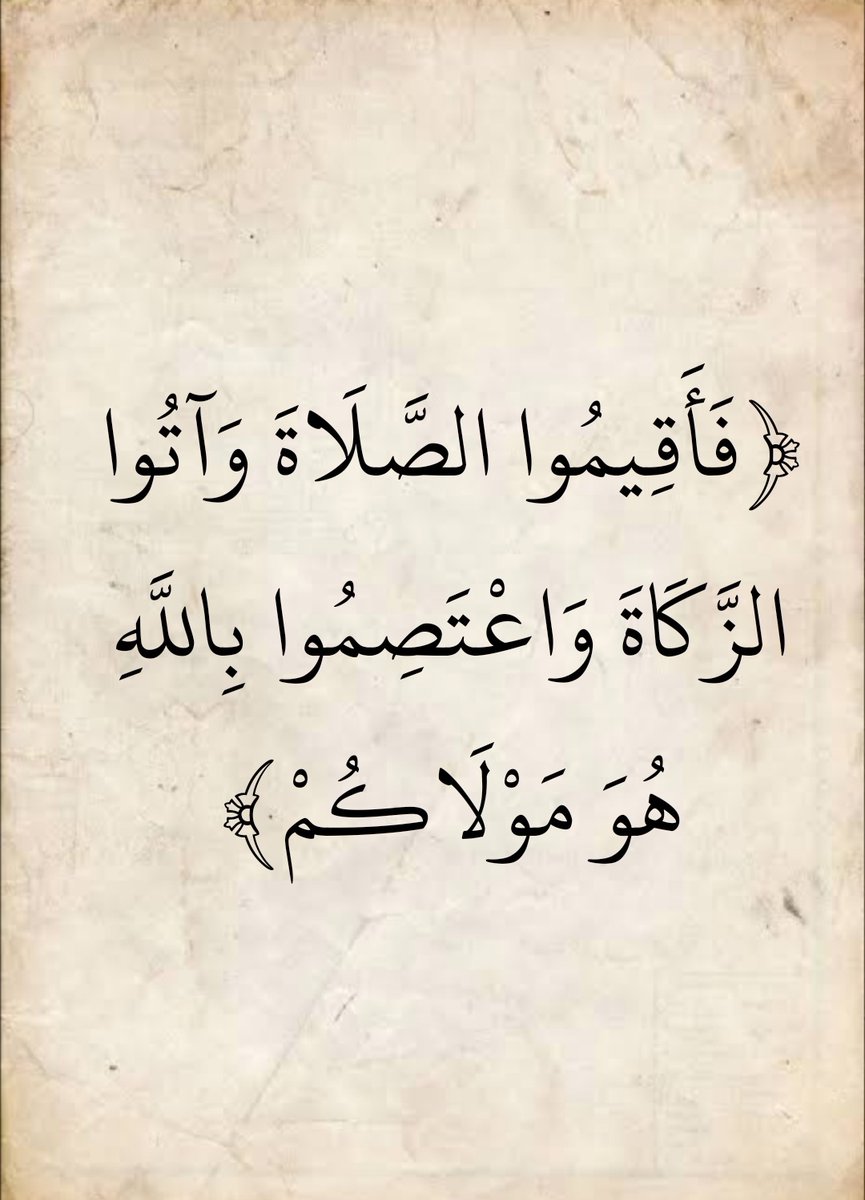 ﴿فَأَقِيمُوا الصَّلَاةَ وَآتُوا
الزَّكَاةَ وَاعْتَصِمُوا بِاللَّهِ
هُوَ مَوْلَاكُمْ﴾